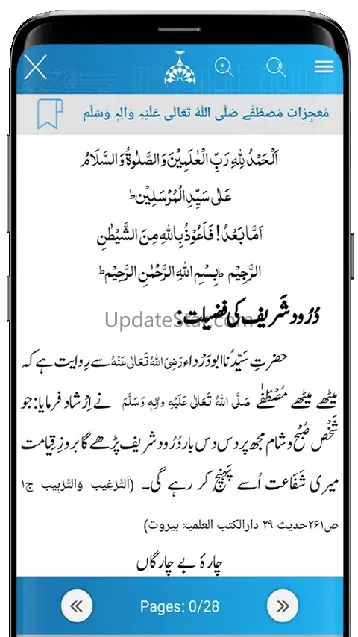 مُعجِزاتِ مُصطَفٰے صَلَّی اللہُ تَعَالٰی عَلَیْہِ وَاٰلِہٖ وَسَلَّم
اَلْحَمْدُ لِلّٰہِ رَبِّ الْعٰلَمِیْنَ وَالصَّلٰوۃُ وَالسَّلَامُ
عَلٰی سَیِّدِ الْمُرْسَلِیْنَ ط
اَمَّا بَعْدُ! فَاَعُوْذُ بِاللّٰہِ مِنَ الشَّیْطٰنِ
الرَّجِیْمِ ط بِسْمِ اللّٰہِ الرَّحْمٰنِ الرَّحِیْمِ ط
دُرُود شریف کی فضیلت:
UpdateStar.com
حضرتِ سَیِّدُنا ابو دَرْداء رَضِیَ اللہُ تَعَالٰی عَنْہُ سے رِوایت ہے کہ
میٹھے میٹھے مُصْطَفٰے صَلَّی اللہُ تَعَالٰی عَلَیْہِ واٰلِہٖ وَسَلَّم نے اِرْشاد فرمایا: جو
شَخْص صُبْح و شام مجھ پر دس دس بار دُرُود شریف پڑھے گا بروزِ قِیامت
میری شَفَاعت اُسے پَہُنچ کر رہے گی۔ (اَلتَّرغِیب وَالتَّرہِیب ج۱
ص۲۶۱ حدیث ۲۹ دارالکتب العلمیۃ بیروت)
چارۂ بے چارگاں
Pages: 0/28